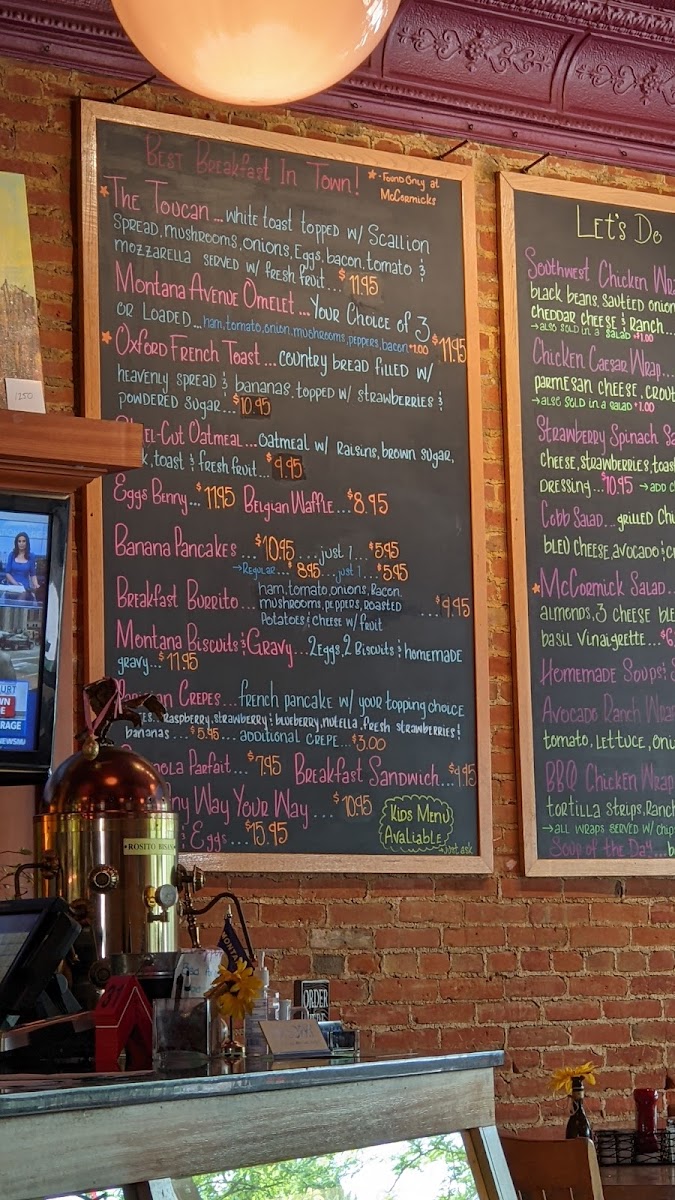 Best Breakfast In Town!
*-Found Only at
McCormicks
*The Toucan...white toast topped w/ Scallion
Spread, mushrooms, onions, Eggs, bacon, tomato &
mozzarella served w/ fresh fruit...$11.95
Montana Avenue Omelet...Your Choice of 3
or Loaded...ham, tomato, onion, mushrooms, peppers, bacon +1.00 $11.95
*Oxford French Toast...country bread filled w/
heavenly spread & bananas, topped w/ strawberries &
powdered sugar...$10.95
el-Cut Oatmeal...oatmeal w/ raisins, brown sugar,
k, toast & fresh fruit...$9.95
Eggs Benny...$11.95 Belgian Waffle...$8.95
Banana Pancakes...$10.95....just 1...$5.95
→Regular...$8.95...just 1...$5.95
Breakfast Burrito...ham, tomato, onions, Bacon,
mushrooms, peppers, roasted
potatoes & cheese w/ fruit....$9.95
Montana Biscuits & Gravy...2 Eggs, 2 Biscuits & homemade
gravy...$11.95
Crepes...french pancake w/ your topping choice
Raspberry, strawberry & blueberry, nutella, fresh strawberries &
bananas...$5.95...additional crepe...$3.00
ola Parfait...$7.95 Breakfast Sandwich...$9.95
ny Way Your Way...$10.95
& Eggs...$15.95
Kids Menu
Avaliable
→Just ask
Let's Do
Southwest Chicken Wra
black beans, sautted onion
cheddar cheese & ranch...
→also sold in a salad +$1.00
Chicken Caesar Wrap...
parmesan cheese, crout
→also sold in a salad +1.00
Strawberry Spinach Sa
cheese, strawberries, toas
dressing...$10.95 →add c
Cobb Salad...grilled chi
bleu cheese, avocado & c
*McCormick Salad...
almonds, 3 cheese ble
basil vinaigrette...$
Homemade Soups & S
Avocado Ranch Wrap
tomato, lettuce, oni
BBQ Chicken Wrap
tortilla strips, ranch
→all wraps served w/ chip
Soup of the Day...b
1250
URT
WN
E
RAGE
ROSITO BISANI
ORDER
HERE